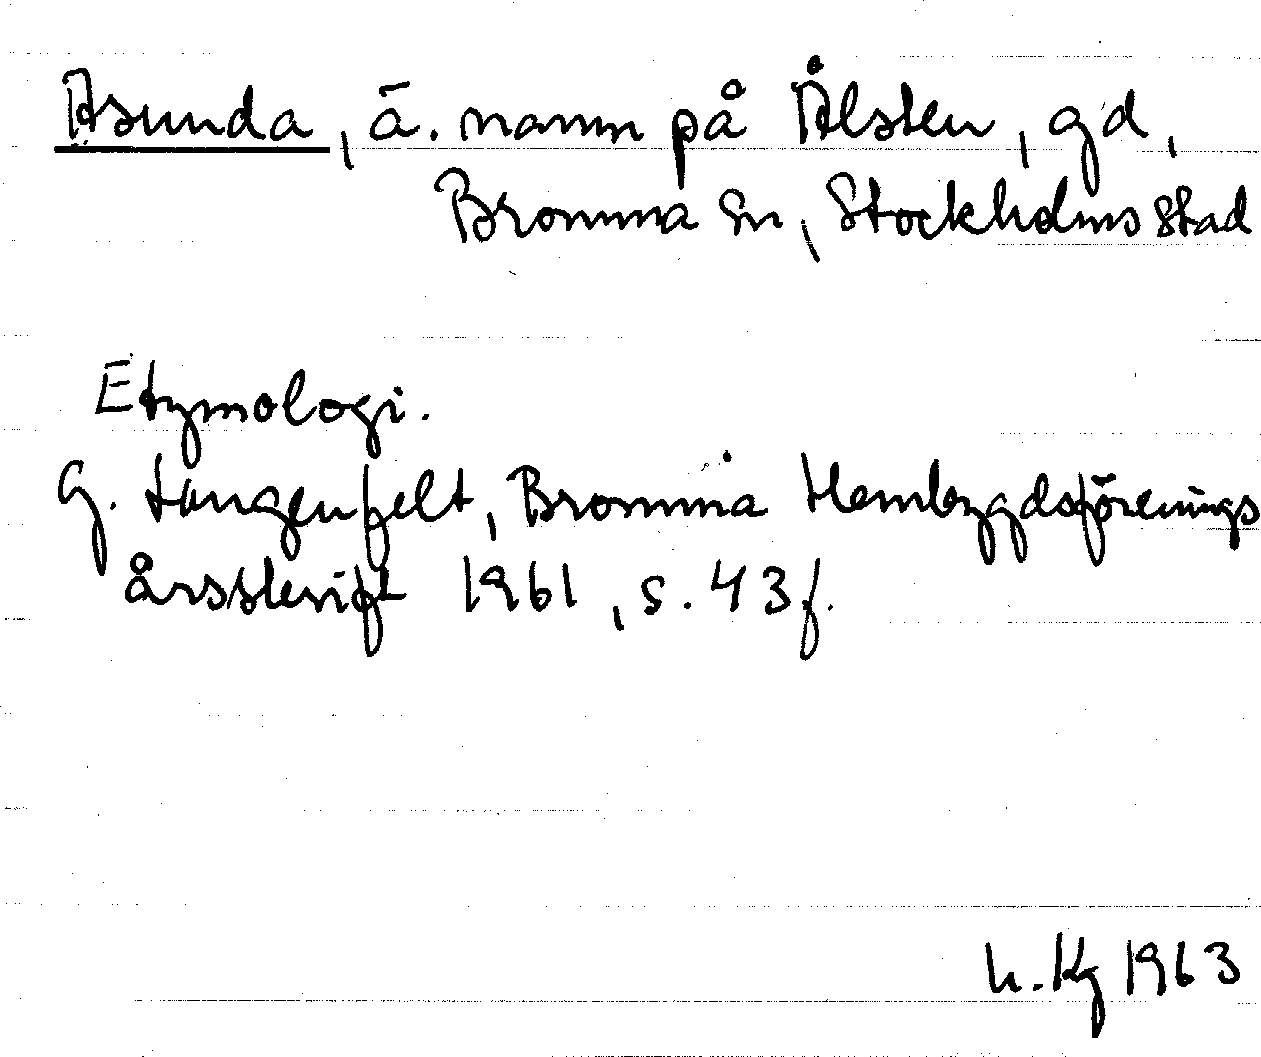 Asunda, ä. namn på Ålsten, gd,
Bromma sn, Stockholms stad
Etymologi.
G. Langenfelt, Bromma Hembygdsförenings
årsskrift 1961, s. 43f.
h. Kg 1963